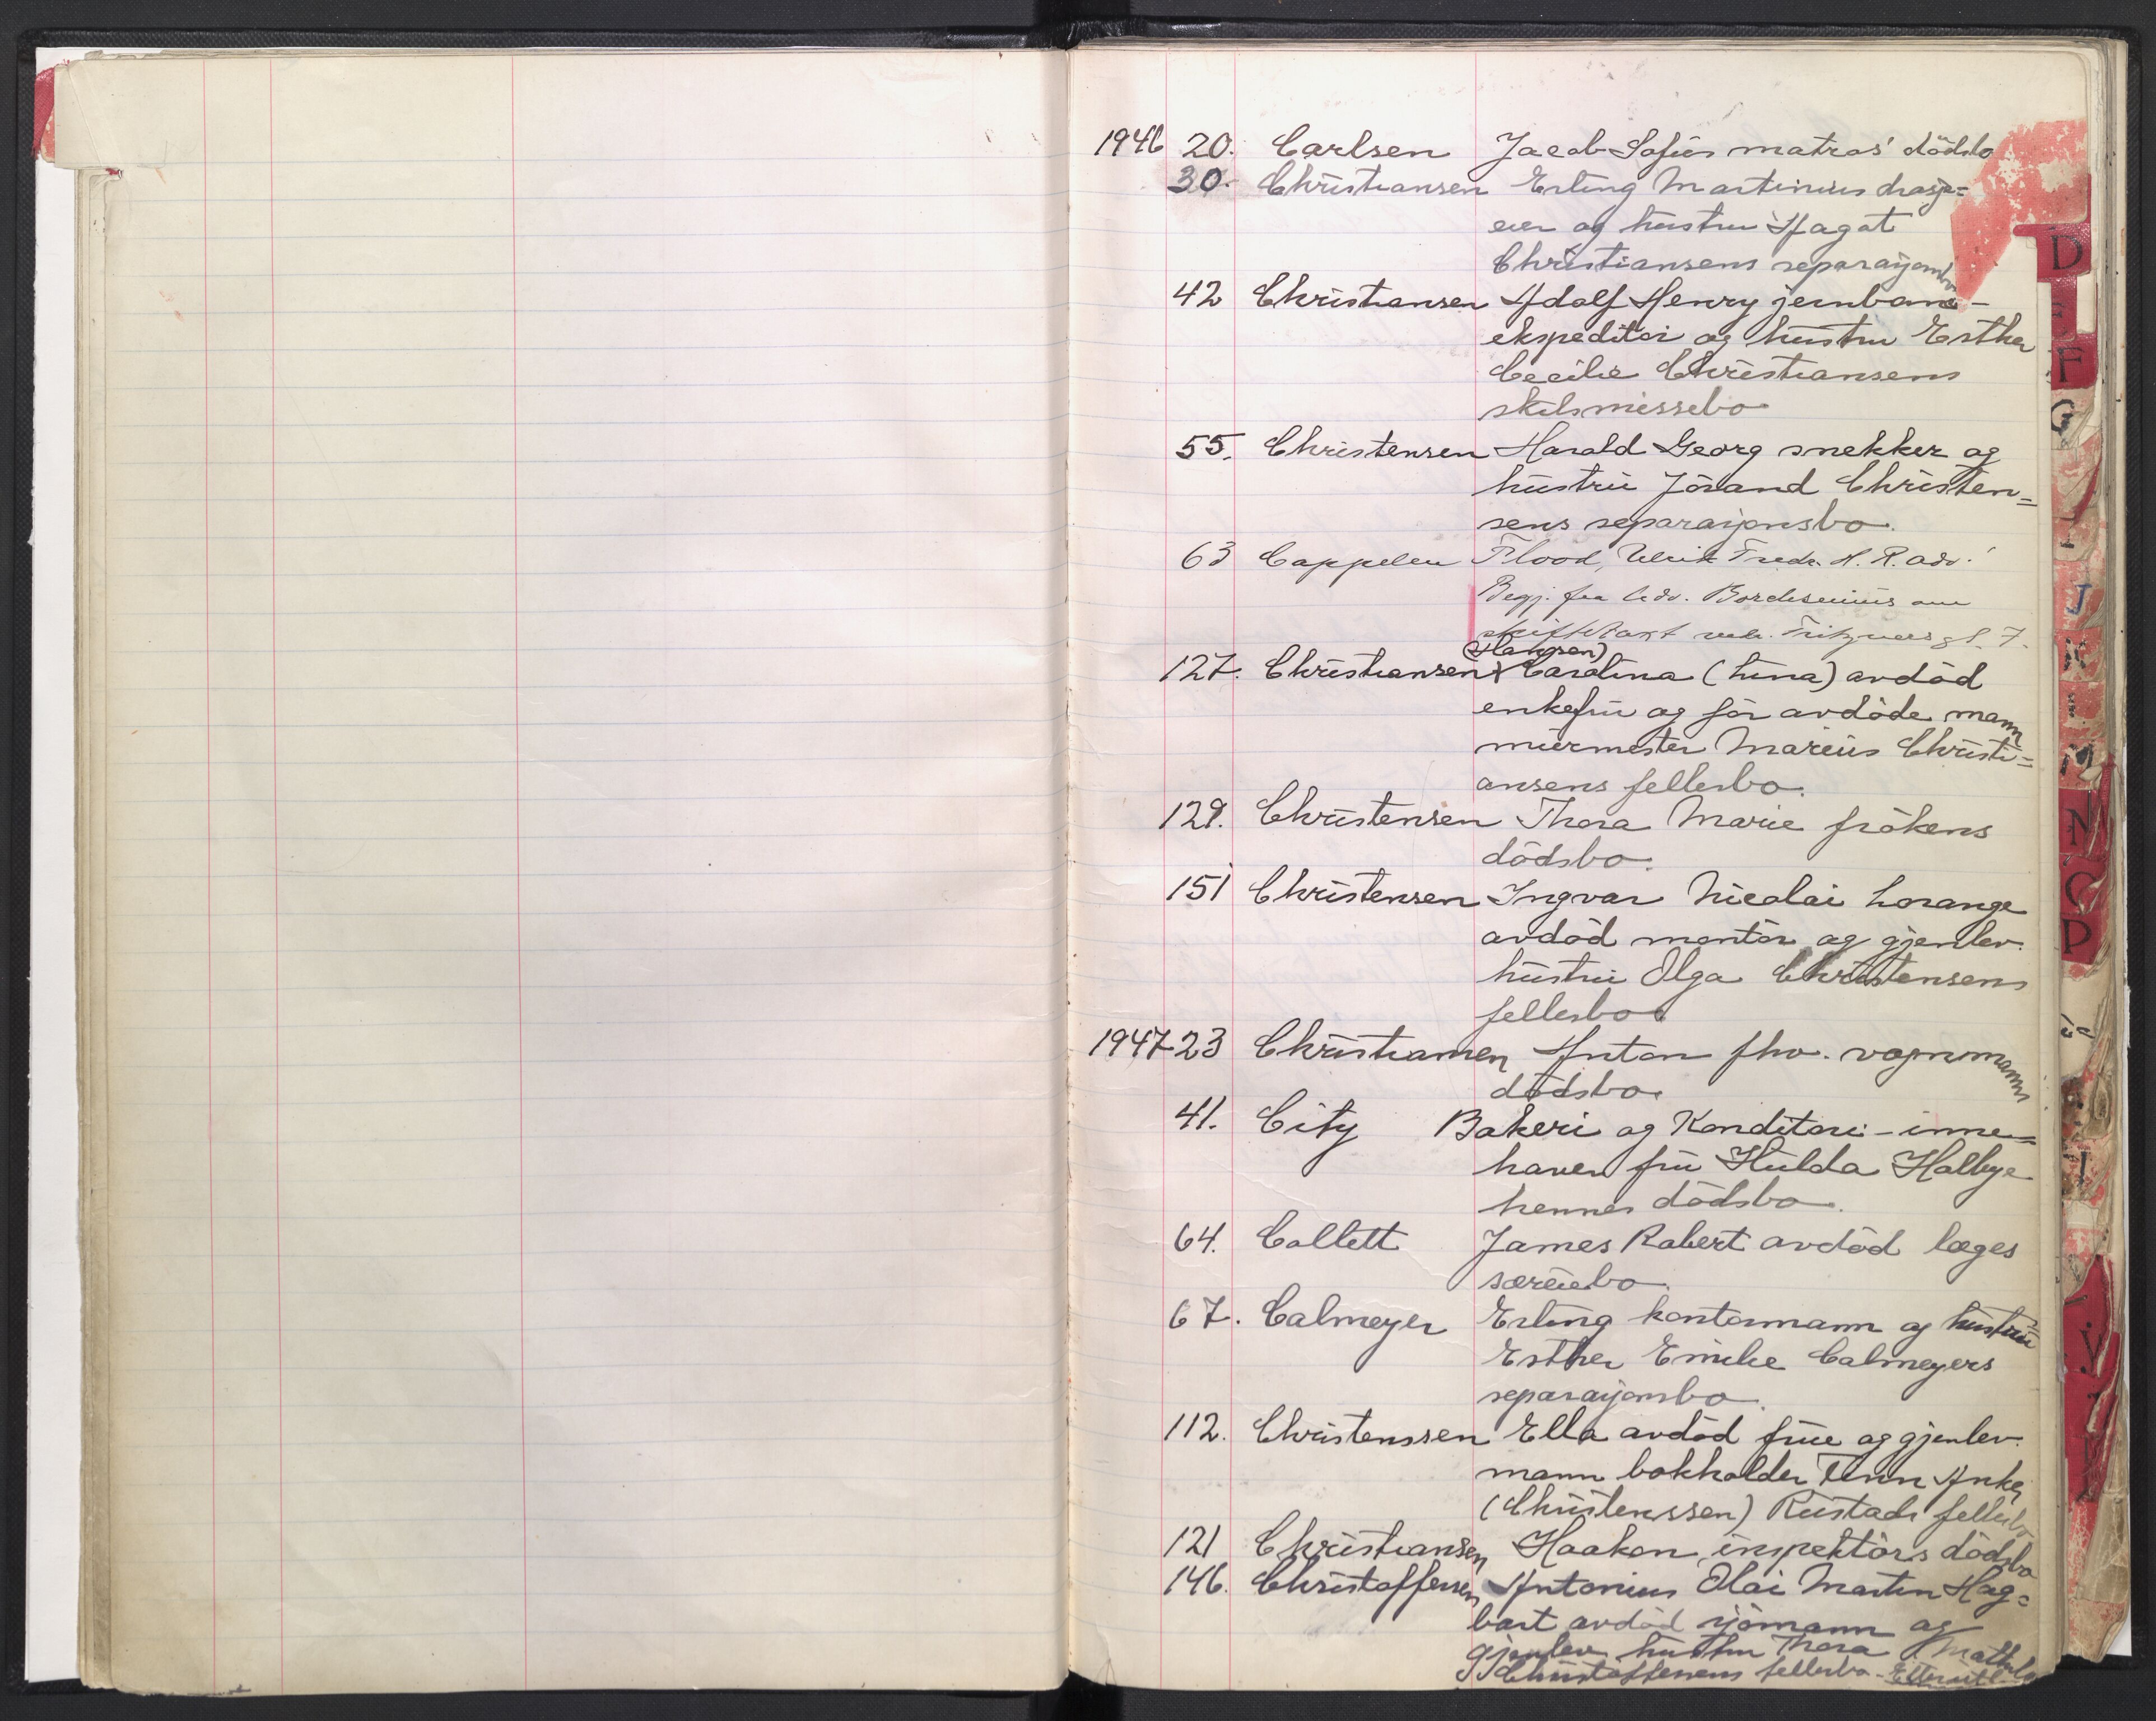 1946 20. Carlsen Jacob Sofus matros' dödsbo
30. Christiansen Erling Martinius drosje=
eier og hustru Agat
Christiansens separasjonsbo
42 Christiansen Adolf Henry jernbane-
ekspeditør og hustru Esther
Cecilie Christiansens
skilsmissebo
55. Christensen Harald Georg snekker og
hustru Jörand Christen=
sens separasjonsbo.
63 Cappelen Flood, Ulrik Fredr. H. R. adv.
Begj. fra adv. Borchsenius om
skiftetakst vedr. Fritzners gt. 7.
(Hansen)
127. Christiansen Carolina (Lina) avdöd
enkefru og för avdöde mann
murmester Marius Christi=
ansens fellesbo.
129. Christensen Thora Marie frökens
dödsbo.
151 Christensen Ingvar Nicolai Lorange
avdöd montör og gjenlev.
hustru Olga Christensens
fellesbo
1947 23 Christiansen Anton fhv. vognmanns
dödsbo.
41. City Bakeri og Konditori - inne=
haver fru Hulda Halbye
hennes dödsbo.
64. Collett James Robert avdöd læges
særeiebo.
67. Calmeyer Erling kontormann og hustru
Esther Emilie Calmeyers
separasjonsbo.
112. Christenssen Ella avdöd frue og gjenlev.
mann bokholder Finn Anker
(Christenssen) Rustads fellesbo
121 Christiansen Haakon inspektörs dödsbo
146. Christoffersen Antonius Olai Martin Hag=
bart avdöd sjömann og
gjenlev. hustru Thora Mathilde
Christoffersens fellesbo.
D
F
G
J
K
M
N
O
P